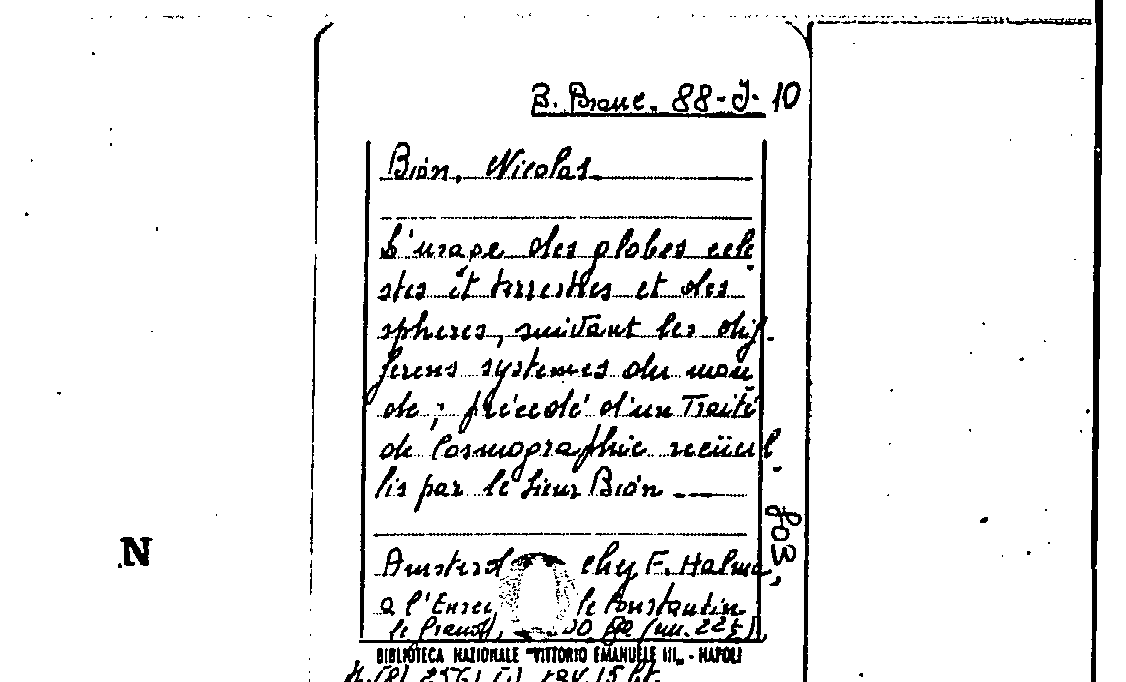 B. Branc. 88-J-10
Bion, Nicolas
L'usage des globes cele
stes et terrestres et des
spheres, suivant les dif-
ferens systemes du mon
de; précédé d'un Traité
de Cosmographie recüeul-
lis par le Sieur Bion
803.
Amsterd chez F. Halma,
a l'Ensei le Constantin
le Grand,
BIBLIOTECA NAZIONALE "VITTORIO EMANUELE III„ - NAPOLI
N